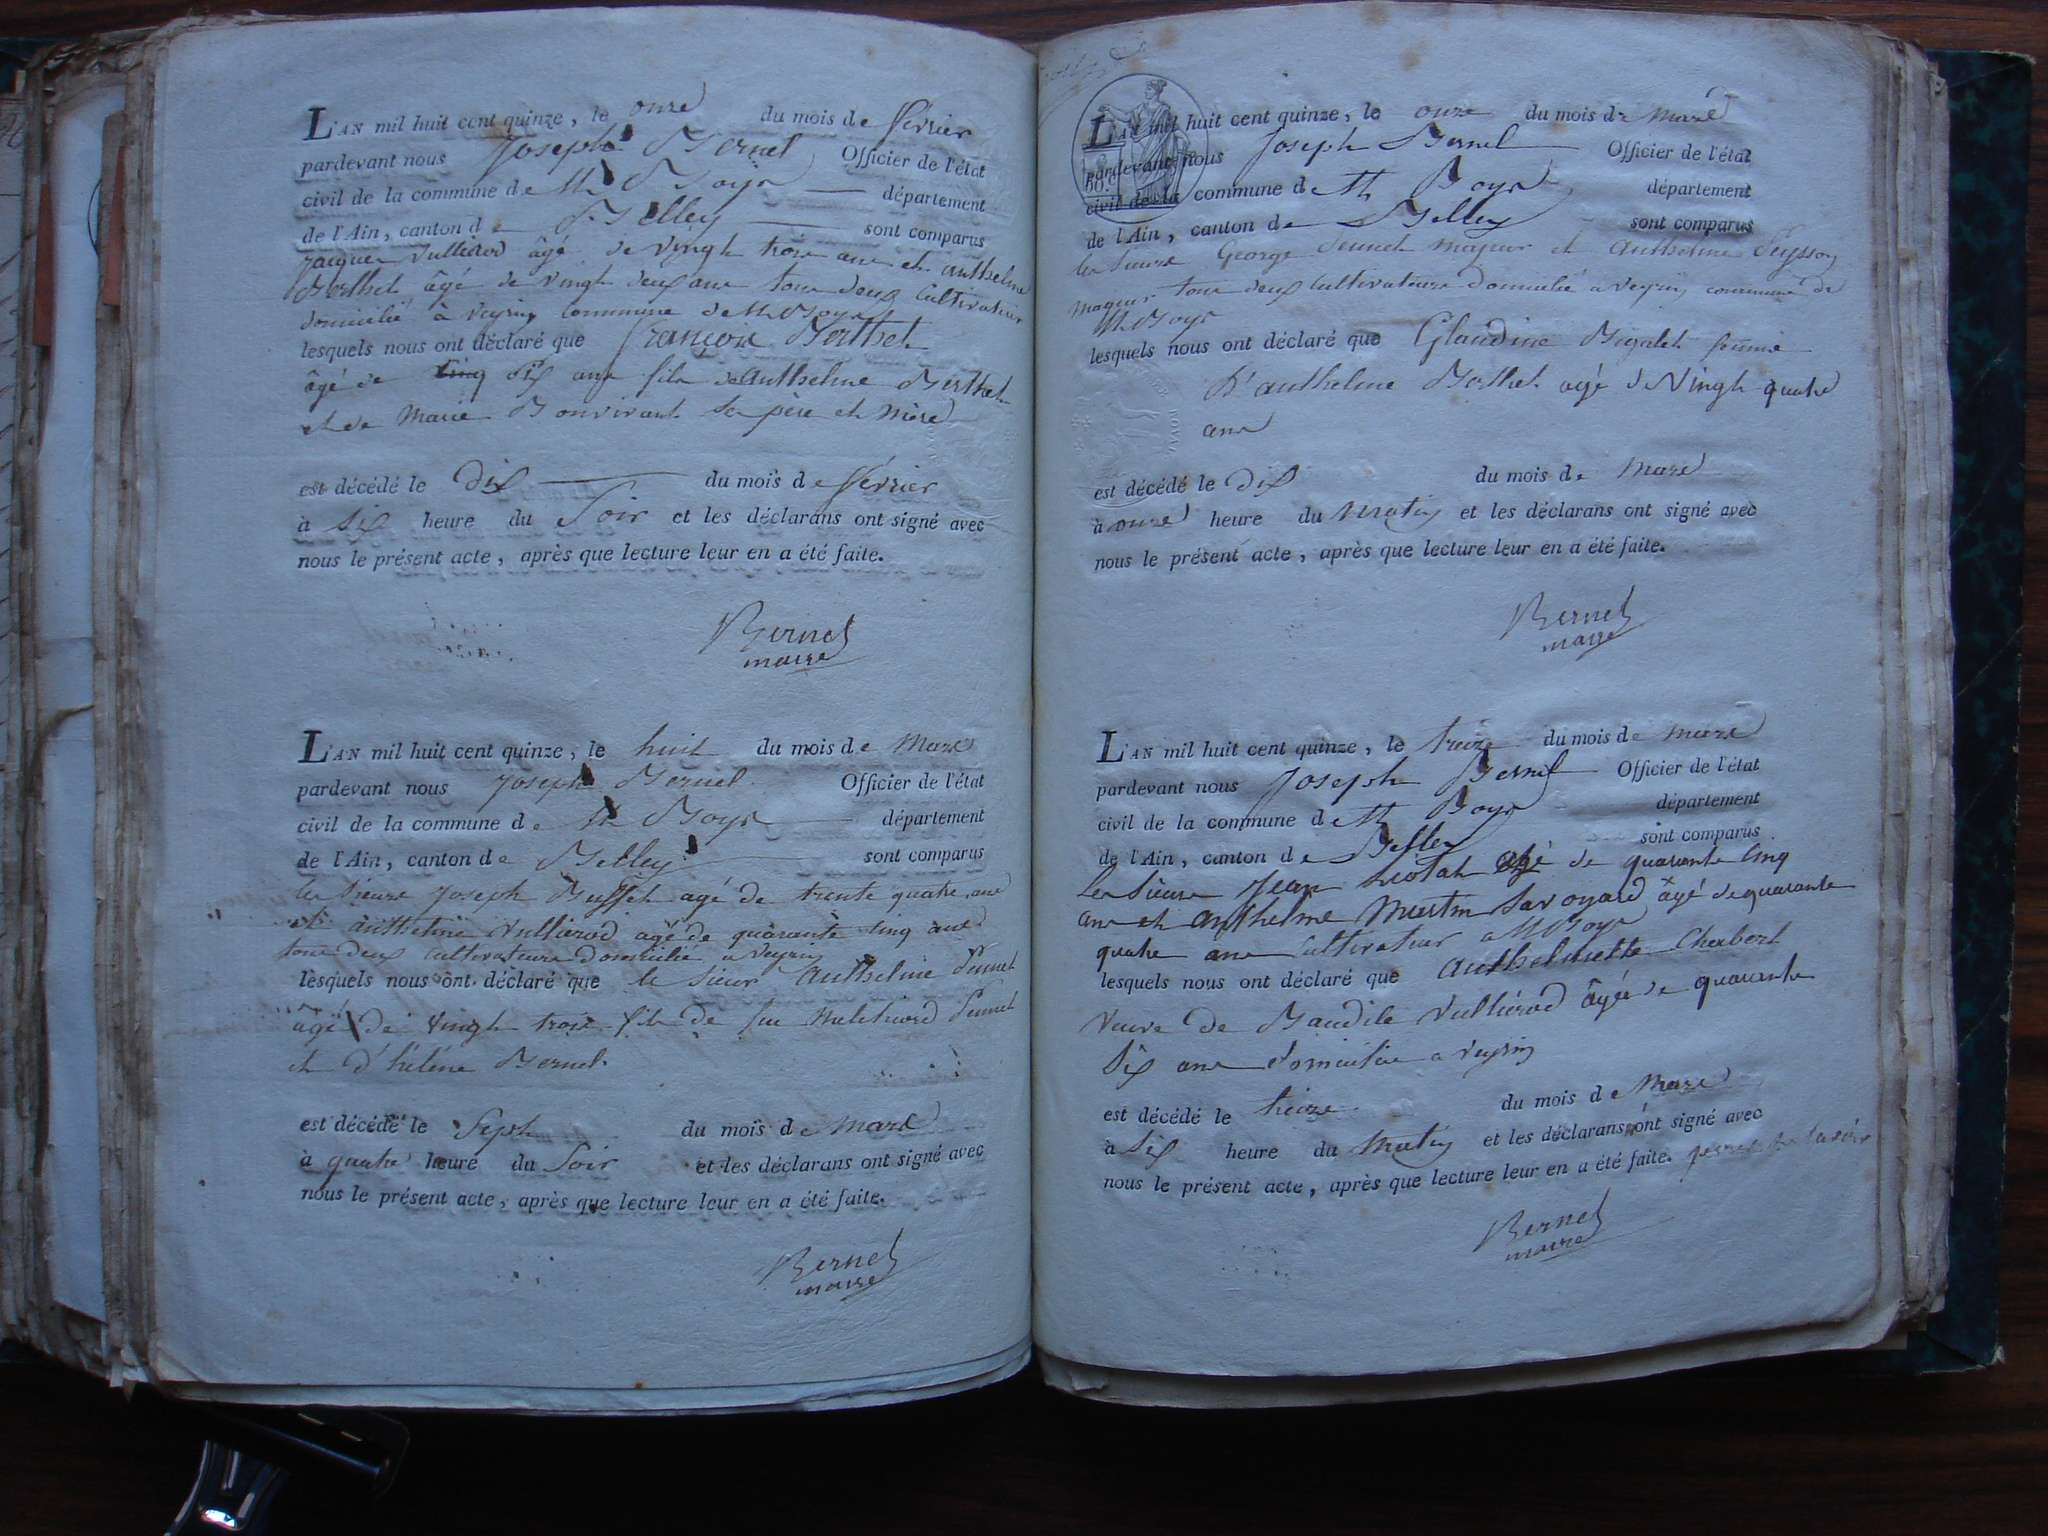 L'AN mil huit cent quinze, le onze du mois de février
pardevant nous Joseph Bernel Officier de l'état
civil de la commune de M Boys département
de l'Ain, canton de Belley sont comparus
jacques vullierod âgé de vingt trois ans et anthelme
Berthet âgé de vingt deux ans tous deux cultivateur
domicilié à veyrin commune de M Boys
lesquels nous ont déclaré que françois Berthet
âgé de six ans fils de anthelme Berthet
et de Marie Bonvivant ses père et mère
est décédé le dix du mois de février
à six heure du soir et les déclarans ont signé avec
nous le présent acte, après que lecture leur en a été faite.
Bernel
maire
L'AN mil huit cent quinze, le huit du mois de mars
pardevant nous joseph Bernel Officier de l'état
civil de la commune de M Boys département
de l'Ain, canton de Belley sont comparus
les sieurs joseph Buffet agé de trente quatre ans
et anthelme vullierod agé de quarante cinq ans
tous deux cultivateurs domicilié a veyrin
lesquels nous ont déclaré que le sieur anthelme
âgé de vingt trois fils de feu melchiord
et d'hélène Bernel
est décédé le sept du mois de mars
à quatre heure du soir et les déclarans ont signé avec
nous le présent acte, après que lecture leur en a été faite.
Bernel
maire
L'AN mil huit cent quinze, le onze du mois de mars
pardevant nous Joseph Bernel Officier de l'état
civil de la commune de M Boys département
de l'Ain, canton de Belley sont comparus
les sieurs George majeur et anthelme Peysson
majeur tous deux cultivateurs domicilié a veyrin commune de
M Boys
lesquels nous ont déclaré que Glaudine femme
d'anthelme Berthet agé de vingt quatre
ans
est décédé le dix du mois de mars
à onze heure du matin et les déclarans ont signé avec
nous le présent acte, après que lecture leur en a été faite.
Bernel
maire
L'AN mil huit cent quinze, le treize du mois de mars
pardevant nous Joseph Bernel Officier de l'état
civil de la commune de M Boys département
de l'Ain, canton de Belley sont comparus
les sieurs Jean agé de quarante cinq
ans et anthelme Martin Savoyard âgé de quarante
quatre ans cultivateur a M Boys
lesquels nous ont déclaré que anthelmette Charbert
veuve de Baudile vullierod âgée de quarante
six ans domiciliée a veyrin
est décédé le treize du mois de mars
à six heure du matin et les déclarans ont signé avec
nous le présent acte, après que lecture leur en a été faite.
Bernel
maire